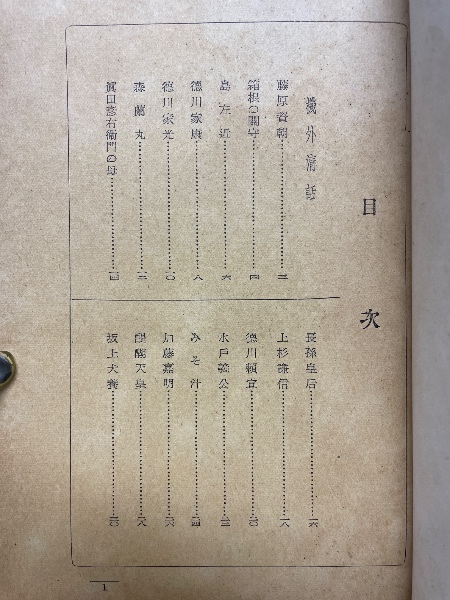 目次
機外清話
藤原資朝……三
箱根の關守……四
島左近……六
德川家康……八
德川家光……一〇
森蘭丸……一二
眞田彥右衞門の母……一四
長孫皇后……一六
上杉謙信……一八
德川頼宣……二〇
水戶義公……二二
みそ汁……二四
加藤嘉明……二六
醍醐天皇……二八
坂上犬養……三〇
1